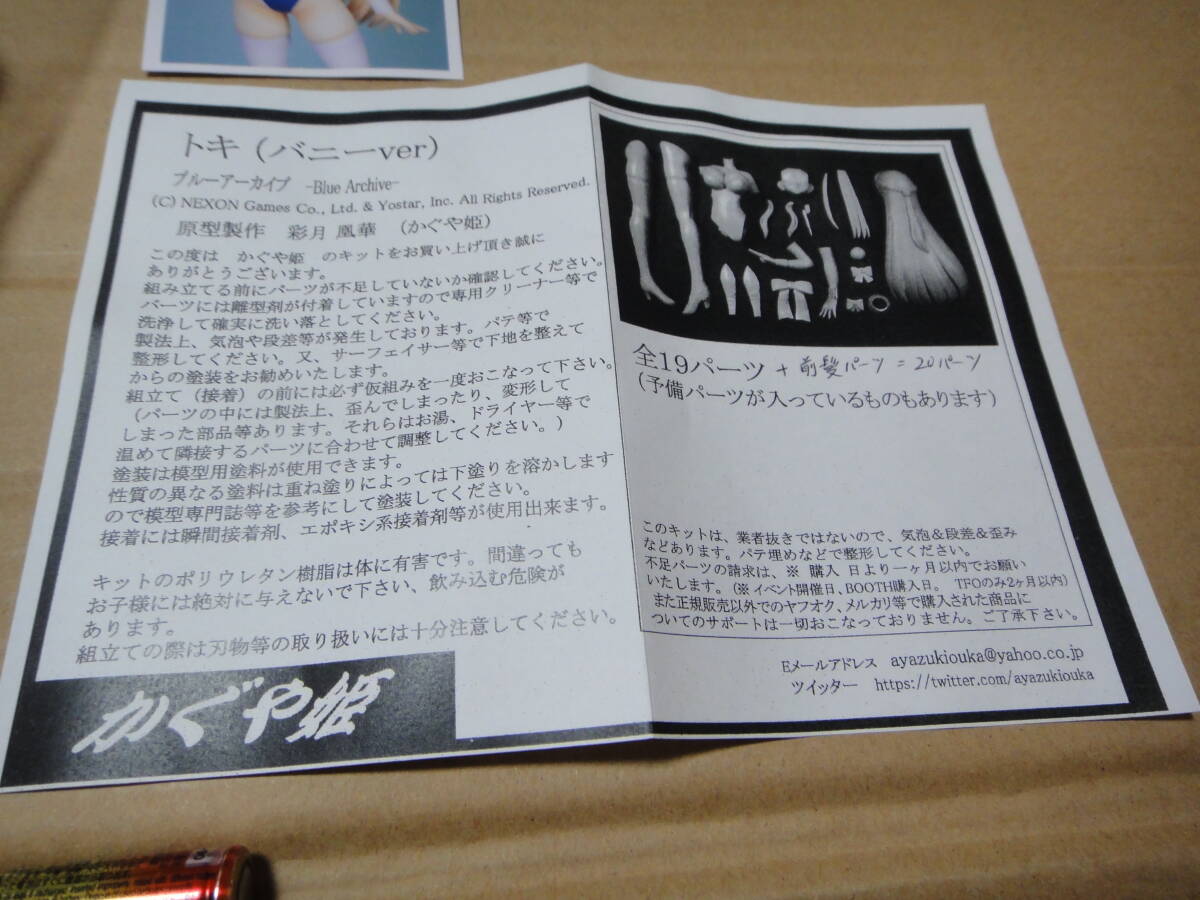 トキ（バニーver）
ブルーアーカイブ　-Blue Archive-
(C) NEXON Games Co., Ltd. & Yostar, Inc. All Rights Reserved.
原型製作　彩月 凰華　（かぐや姫）
この度は　かぐや姫　のキットをお買い上げ頂き誠に
ありがとうございます。
組み立てる前にパーツが不足していないか確認してください。
パーツには離型剤が付着していますので専用クリーナー等で
洗浄して確実に洗い落としてください。
製法上、気泡や段差等が発生しております。パテ等で
整形してください。又、サーフェイサー等で下地を整えて
からの塗装をお勧めいたします。
組立て（接着）の前には必ず仮組みを一度おこなって下さい。
（パーツの中には製法上、歪んでしまったり、変形して
しまった部品等あります。それらはお湯、ドライヤー等で
温めて隣接するパーツに合わせて調整してください。）
塗装は模型用塗料が使用できます。
性質の異なる塗料は重ね塗りによっては下塗りを溶かします
ので模型専門誌等を参考にして塗装してください。
接着には瞬間接着剤、エポキシ系接着剤等が使用出来ます。
キットのポリウレタン樹脂は体に有害です。間違っても
お子様には絶対に与えないで下さい、飲み込む危険が
あります。
組立ての際は刃物等の取り扱いには十分注意してください。
かぐや姫
全19パーツ + 前髪パーツ = 20パーツ
（予備パーツが入っているものもあります）
このキットは、業者抜きではないので、気泡&段差&歪み
などあります。パテ埋めなどで整形してください。
不足パーツの請求は、※ 購入 日より一ヶ月以内でお願い
いたします。（※イベント開催日、BOOTH購入日。　TFOのみ2ヶ月以内）
また正規販売以外でのヤフオク、メルカリ等で購入された商品に
ついてのサポートは一切おこなっておりません。ご了承下さい。
Eメールアドレス　ayazukiouka@yahoo.co.jp
ツイッター　https://twitter.com/ayazukiouka